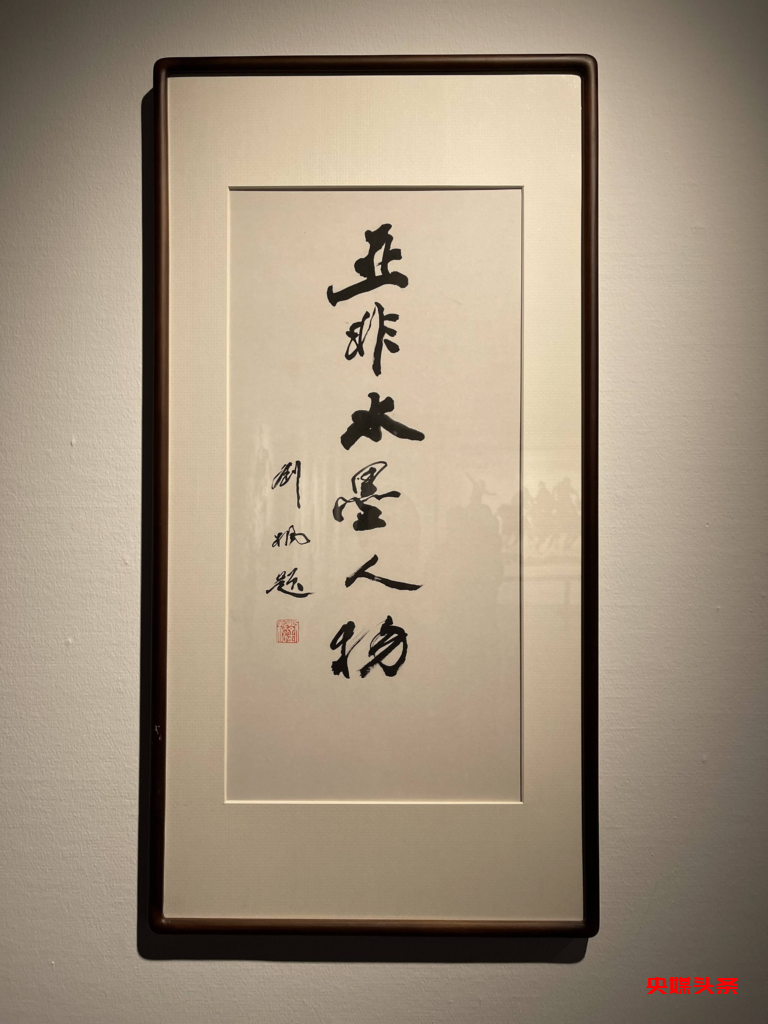 亚非水墨人物
刘枫题
央媒头条